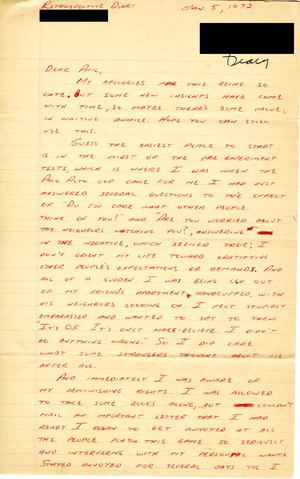 RETROSPECTIVE DIARY
JAN. 5, 1972
Diary
DEAR PHIL,
MY APOLOGIES FOR THIS BEING SO
LATE. BUT SOME NEW INSIGHTS HAVE COME
WITH TIME, SO MAYBE THERE'S SOME VALUE
IN WAITING AWHILE. HOPE YOU CAN STILL
USE THIS.
GUESS THE EASIEST PLACE TO START
IS IN THE MIDST OF THE PRE-EXPERIMENT
TESTS, WHICH IS WHERE I WAS WHEN THE
PALO ALTO COP CAME FOR ME. I HAD JUST
ANSWERED SEVERAL QUESTIONS TO THE EFFECT
OF "DO YOU CARE WHAT OTHER PEOPLE
THINK OF YOU?" AND "ARE YOU WORRIED ABOUT
THE NEIGHBORS WATCHING YOU?, ANSWERING
IN THE NEGATIVE, WHICH SEEMED TRUE; I
DON'T ORIENT MY LIFE TOWARD GRATIFYING
OTHER PEOPLE'S EXPECTATIONS OR DEMANDS. AND
ALL OF A SUDDEN I WAS BEING LED OUT
OF MY FRIEND'S APARTMENT, HANDCUFFED, WITH
HIS NEIGHBORS LOOKING ON. I FELT STUPIDLY
EMBARASSED AND WANTED TO SAY TO THEM
"IT'S OK. IT'S ONLY MAKE-BELIEVE. I DIDN'T
DO ANYTHING WRONG." SO I DID CARE
WHAT SOME STRANGERS THOUGHT ABOUT ME
AFTER ALL.
AND IMMEDIATELY I WAS AWARE OF
MY DIMINISHING RIGHTS. I WAS ALLOWED
TO TAKE SOME BOOKS ALONG, BUT COULDN'T
MAIL AN IMPORTANT LETTER THAT I HAD
READY. I BEGAN TO GET ANNOYED AT ALL
THE PEOPLE PLAYING THIS GAME SO SERIOUSLY
AND INTERFERING WITH MY PERSONAL WANTS
STAYED ANNOYED FOR SEVERAL DAYS TIL I